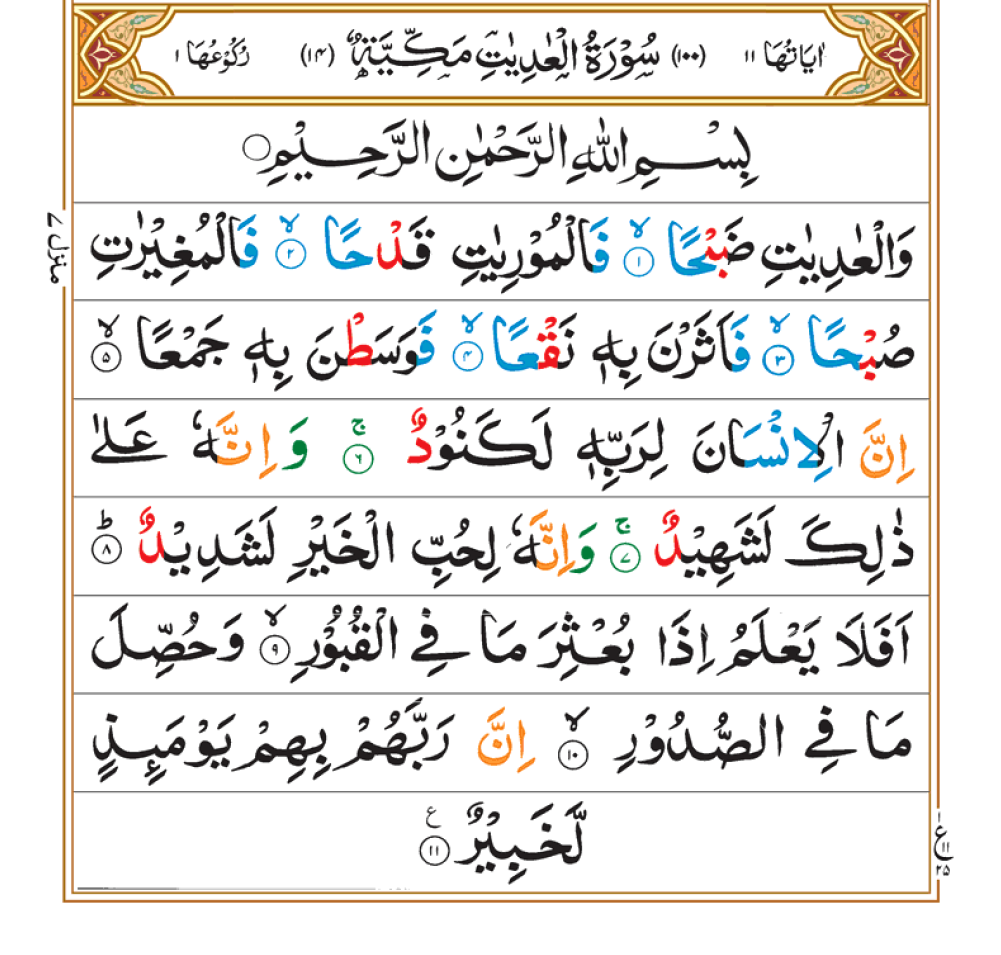 اٰيَاتُهَا ١١ (١٠٠) سُوْرَةُ الْعٰدِيٰتِ مَكِّيَّةٌ (١٤) رُكُوْعُهَا ١
بِسْمِ اللّٰهِ الرَّحْمٰنِ الرَّحِيْمِ ۝
وَالْعٰدِيٰتِ ضَبْحًا ۙ‏﴿۱﴾ فَالْمُوْرِيٰتِ قَدْحًا ۙ‏﴿۲﴾ فَالْمُغِيْرٰتِ
صُبْحًا ۙ‏﴿۳﴾ فَاَثَرْنَ بِهٖ نَقْعًا ۙ‏﴿۴﴾ فَوَسَطْنَ بِهٖ جَمْعًا ۙ‏﴿۵﴾
اِنَّ الْاِنْسَانَ لِرَبِّهٖ لَكَنُوْدٌ ۚ‏﴿۶﴾ وَاِنَّهٗ عَلٰى
ذٰلِكَ لَشَهِيْدٌ ۚ‏﴿۷﴾ وَاِنَّهٗ لِحُبِّ الْخَيْرِ لَشَدِيْدٌ ؕ‏﴿۸﴾
اَفَلَا يَعْلَمُ اِذَا بُعْثِرَ مَا فِى الْقُبُوْرِ ۙ‏﴿۹﴾ وَحُصِّلَ
مَا فِى الصُّدُوْرِ ۙ‏﴿۱۰﴾ اِنَّ رَبَّهُمْ بِهِمْ يَوْمَىِٕذٍ
لَّخَبِيْرٌ ‏﴿۱۱﴾ ع
منزل ٧
١
ع
١١
٢٥